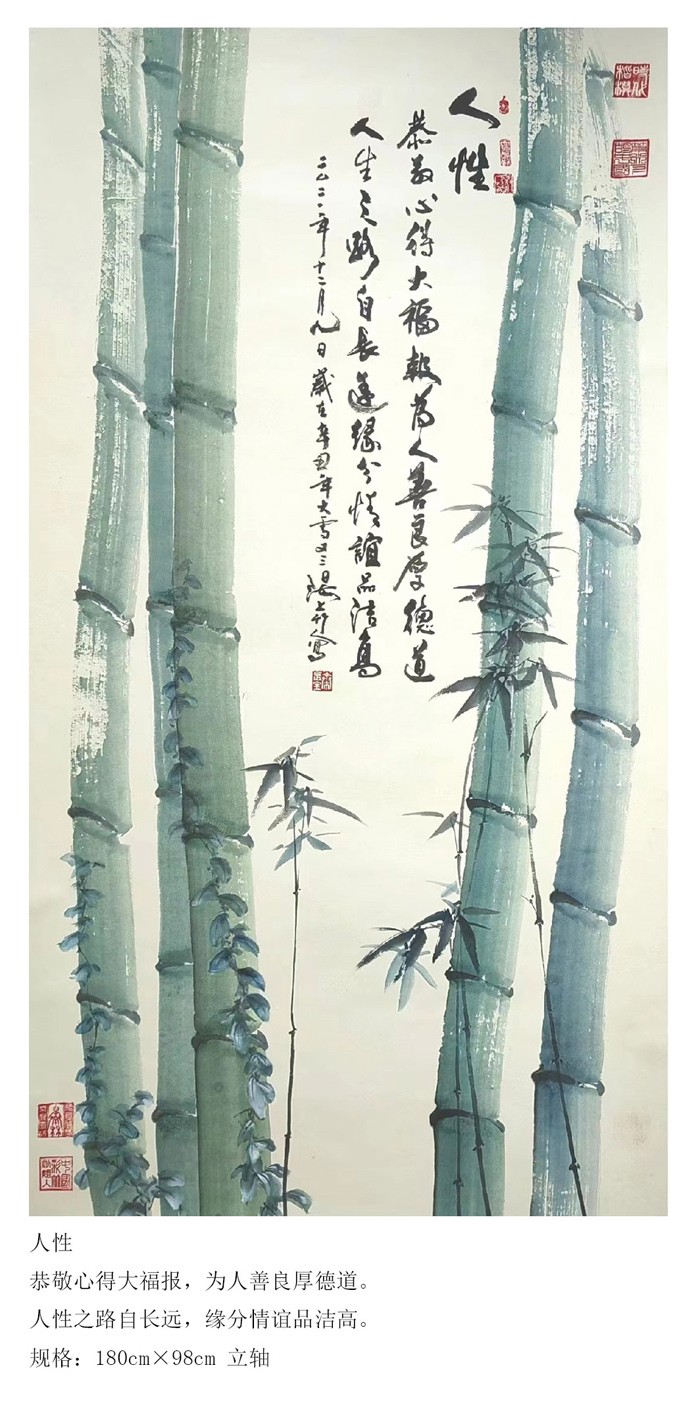 人性
恭敬心得大福報为人善良厚德道
人生之路自長遠缘分情誼品洁高
二〇二一年十二月九日歲在辛丑年大雪又三
人性
恭敬心得大福报，为人善良厚德道。
人性之路自长远，缘分情谊品洁高。
规格：180cm×98cm 立轴